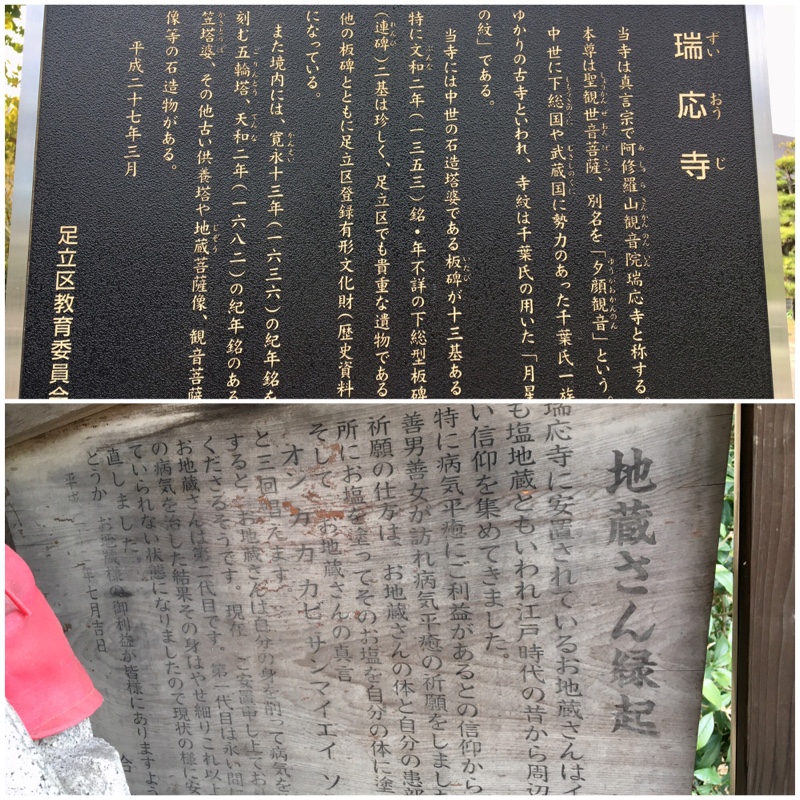 瑞応寺
ずいおうじ
当寺は真言宗で阿修羅山観音院瑞応寺と称する。
あしゅらさんかんのんいん
本尊は聖観世音菩薩、別名を「夕顔観音」という。
しょうかんぜおんぼさつ
ゆうがおかんのん
中世に下総国や武蔵国に勢力のあった千葉氏一族
しもうさのくに
むさしのくに
ゆかりの古寺といわれ、寺紋は千葉氏の用いた「月星
の紋」である。
当寺には中世の石造塔婆である板碑が十三基ある
いたび
特に文和二年(一三五三)銘・年不詳の下総型板碑
ぶんな
(連碑)二基は珍しく、足立区でも貴重な遺物である
れんぴ
他の板碑とともに足立区登録有形文化財(歴史資料
になっている。
また境内には、寛永十三年(一六三六)の紀年銘を
かんえい
刻む五輪塔、天和二年(一六八二)の紀年銘のある
ごりんとう
てんな
笠塔婆、その他古い供養塔や地蔵菩薩像、観音菩薩
かさとうば
じぞう
像等の石造物がある。
平成二十七年三月
足立区教育委員会
地蔵さん縁起
瑞応寺に安置されているお地蔵さんはイ
も塩地蔵ともいわれ江戸時代の昔から周辺
い信仰を集めてきました。
特に病気平癒にご利益があるとの信仰から
善男善女が訪れ病気平癒の祈願をしました
祈願の仕方は、お地蔵さんの体と自分の患部
所にお塩を塗ってそのお塩を自分の体に塗
そして お地蔵さんの真言
オン カカ カビ サンマイエイ ソ
と三回唱えます。
すると お地蔵さんは自分の身を削って病気を
くださるそうです。現在 ご安置申し上てお
お地蔵さんは第二代目です。第一代目は永い間
の病気を治した結果その身はやせ細りこれ以上
ていられない状態になりましたので現状の様に安
直しました。
どうか お地蔵様の御利益が皆様にありますよう
平成 年七月吉日
合